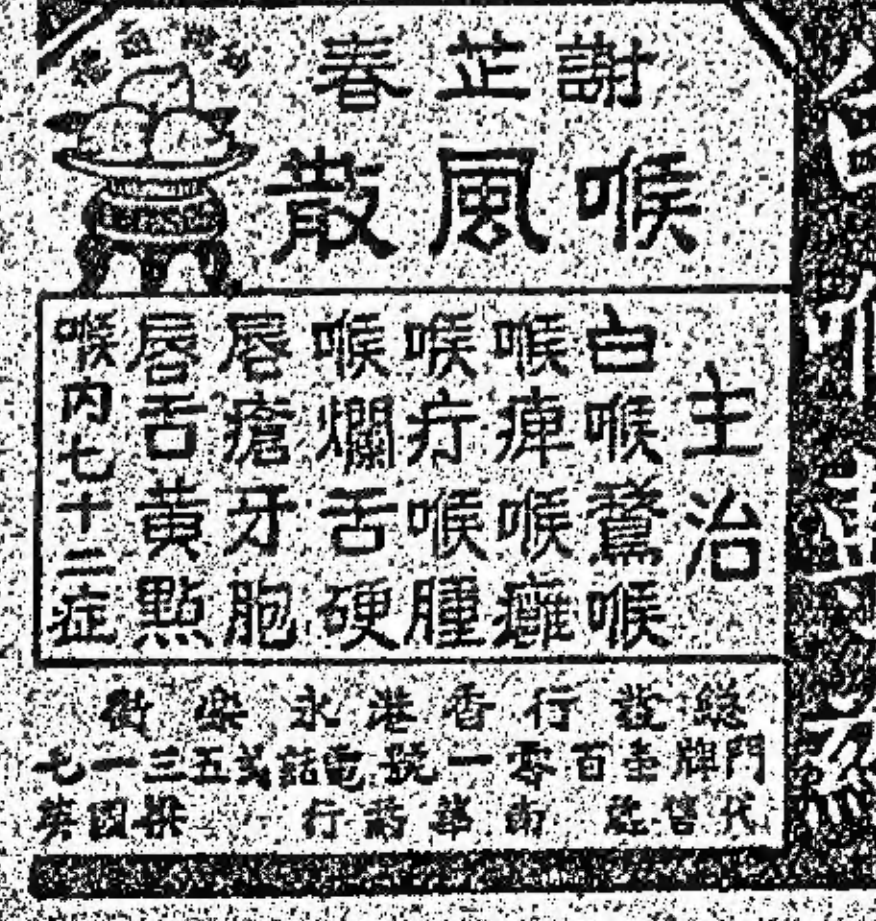 謝芷春
喉風散
主治
白喉鵞喉
喉痺喉癰
喉疔喉腫
喉爛舌硬
唇瘡牙胞
唇舌黃點
喉內七十二症
總發行香港永樂街
門牌壹百零一號電話弍五三一七
代售處南華葯行